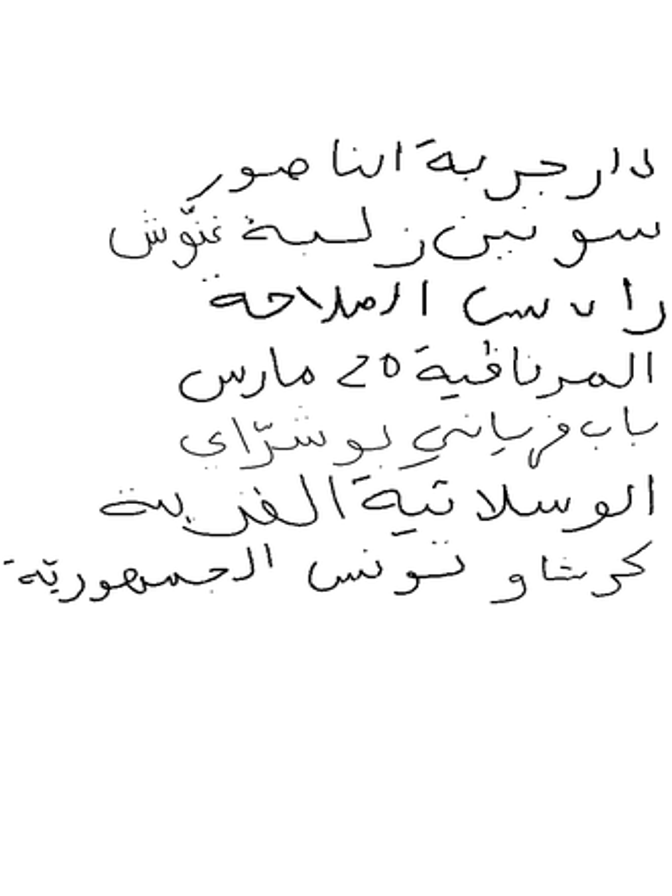 دار جربة الناصور
سونين زلبة غنّوش
رادس الملاحة
المرناقية 20 مارس
باب فرياني بوشرّاي
الوسلاتية الغريبة
كرشاو تونس الجمهوريّة